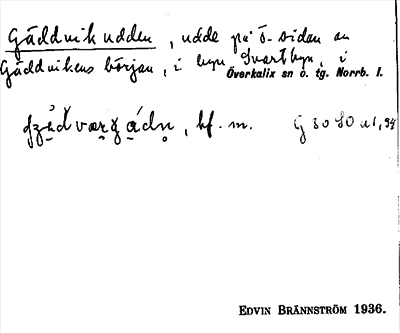 Gäddvikudden, udde på ö-sidan av
Gäddvikens början, i byn Svartbyn, i
Överkalix sn o. tg. Norrb. l.
, bf. m.
EDVIN BRÄNNSTRÖM 1936.